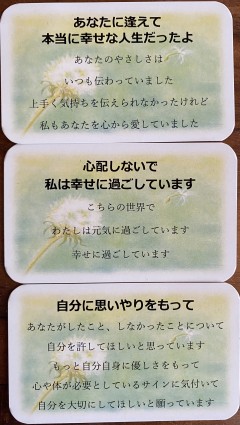 あなたに逢えて
本当に幸せな人生だったよ
あなたのやさしさは
いつも伝わっていました
上手く気持ちを伝えられなかったけれど
私もあなたを心から愛していました
心配しないで
私は幸せに過ごしています
こちらの世界で
わたしは元気に過ごしています
幸せに過ごしています
自分に思いやりをもって
あなたがしたこと、しなかったことについて
自分を許してほしいと思っています
もっと自分自身に優しさをもって
心や体が必要としているサインに気付いて
自分を大切にしてほしいと願っています